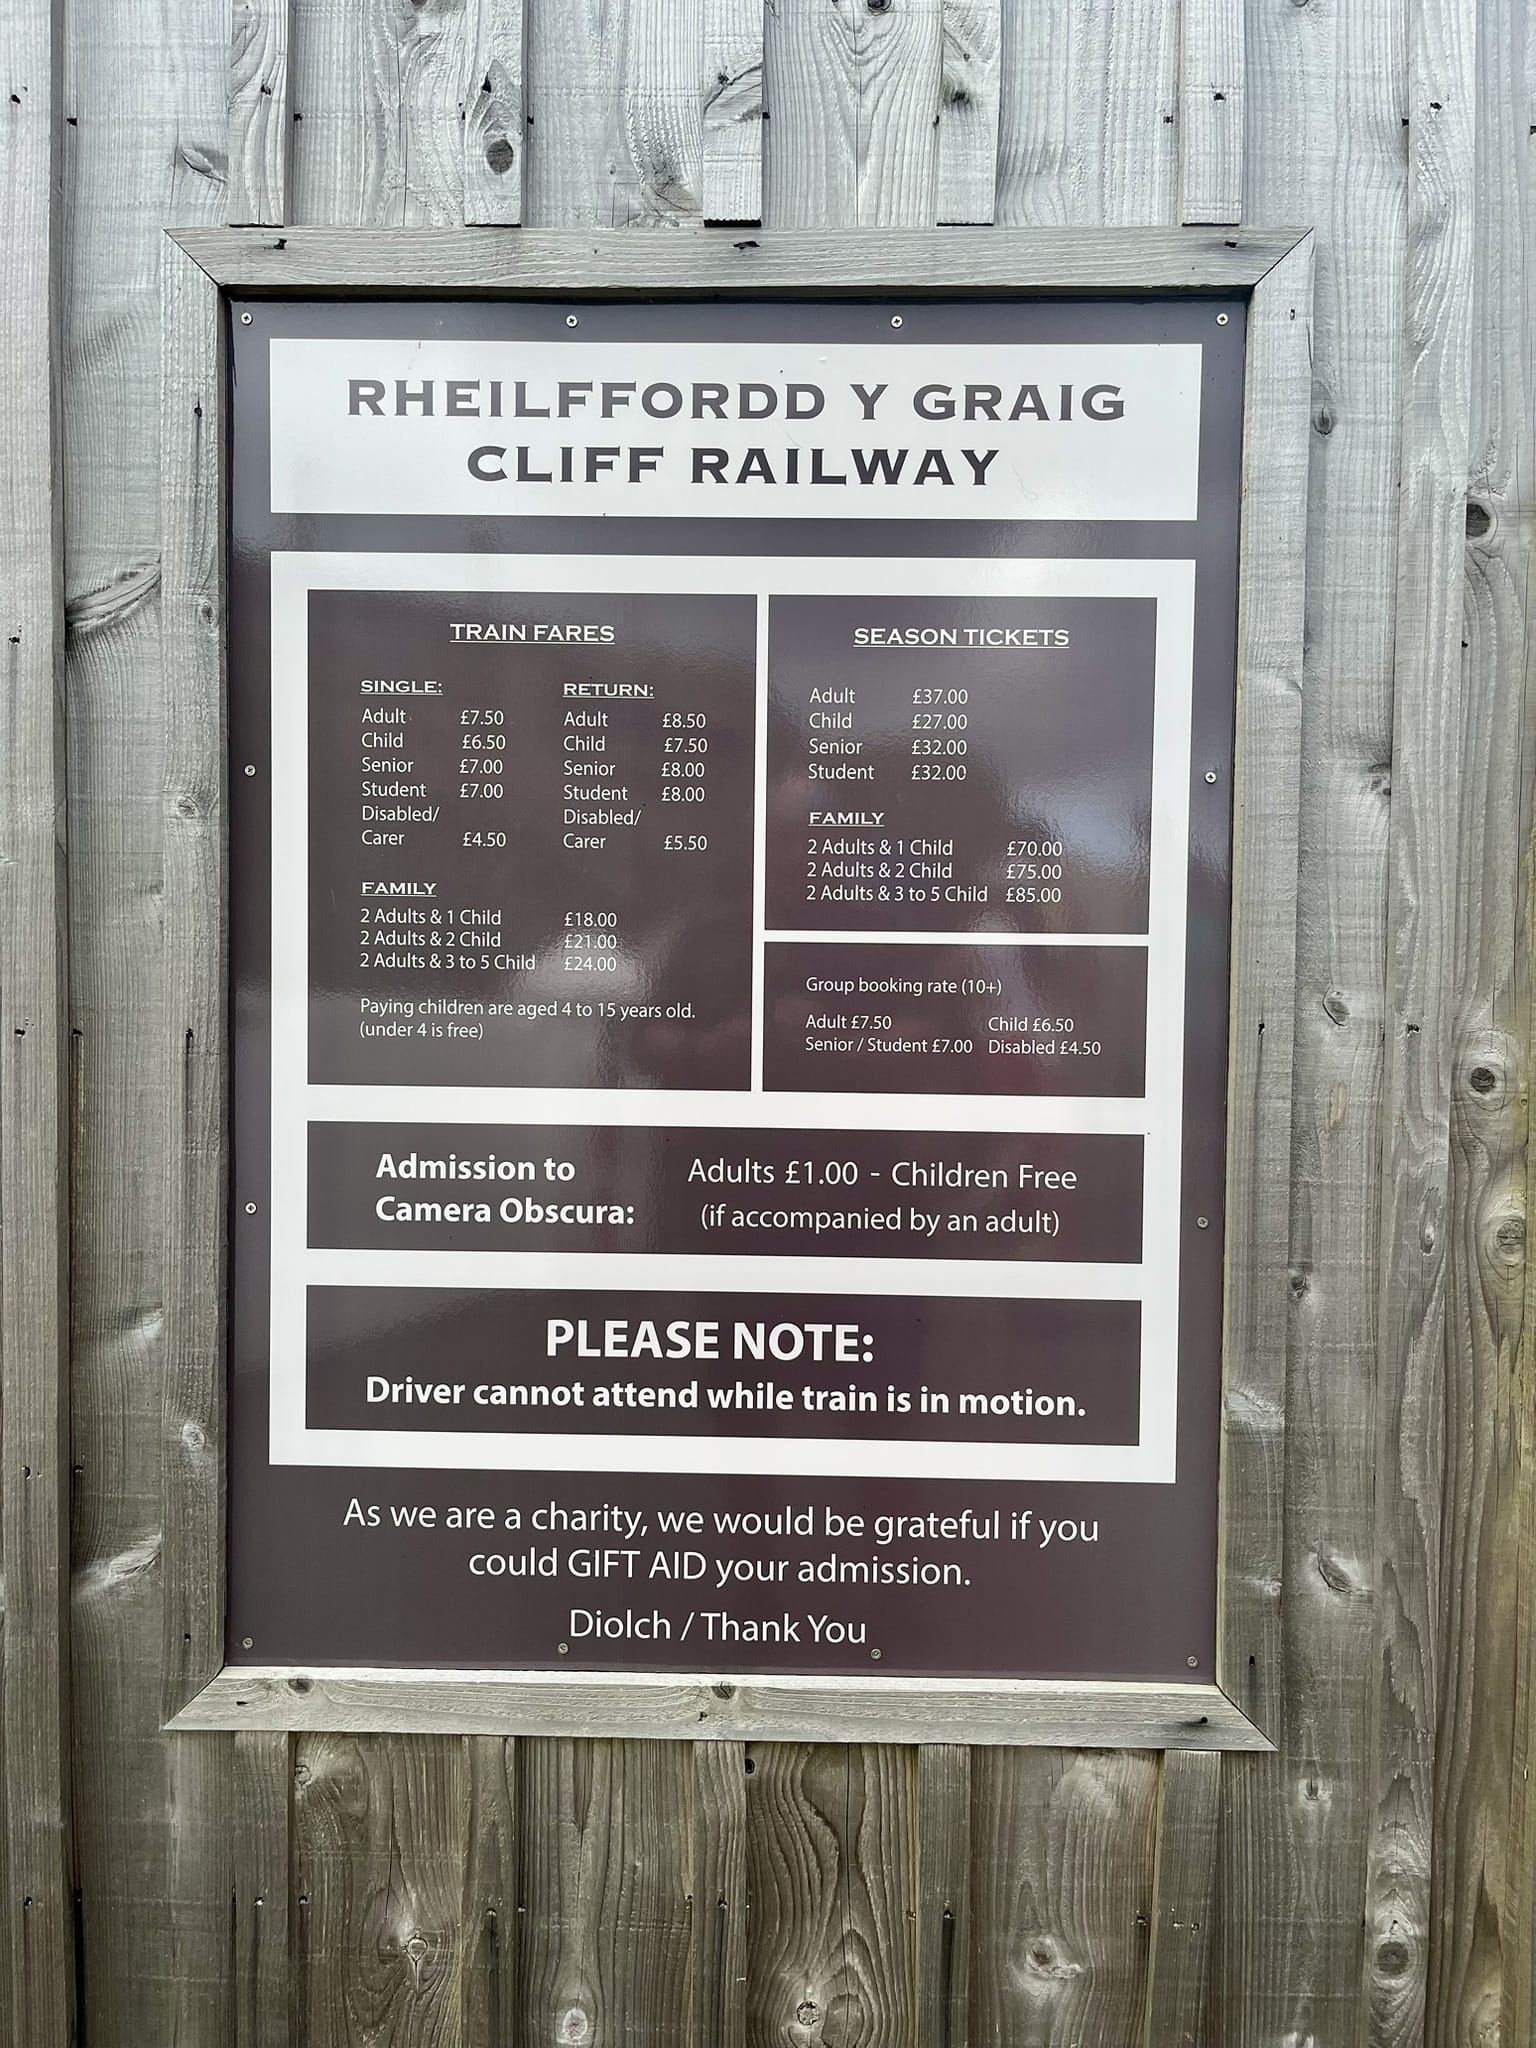 RHEILFFORDD Y GRAIG
CLIFF RAILWAY
TRAIN FARES
SINGLE:
Adult £7.50
Child £6.50
Senior £7.00
Student £7.00
Disabled/
Carer £4.50
RETURN:
Adult £8.50
Child £7.50
Senior £8.00
Student £8.00
Disabled/
Carer £5.50
FAMILY
2 Adults & 1 Child £18.00
2 Adults & 2 Child £21.00
2 Adults & 3 to 5 Child £24.00
Paying children are aged 4 to 15 years old.
(under 4 is free)
SEASON TICKETS
Adult £37.00
Child £27.00
Senior £32.00
Student £32.00
FAMILY
2 Adults & 1 Child £70.00
2 Adults & 2 Child £75.00
2 Adults & 3 to 5 Child £85.00
Group booking rate (10+)
Adult £7.50 Child £6.50
Senior / Student £7.00 Disabled £4.50
Admission to
Camera Obscura:
Adults £1.00 - Children Free
(if accompanied by an adult)
PLEASE NOTE:
Driver cannot attend while train is in motion.
As we are a charity, we would be grateful if you
could GIFT AID your admission.
Diolch / Thank You